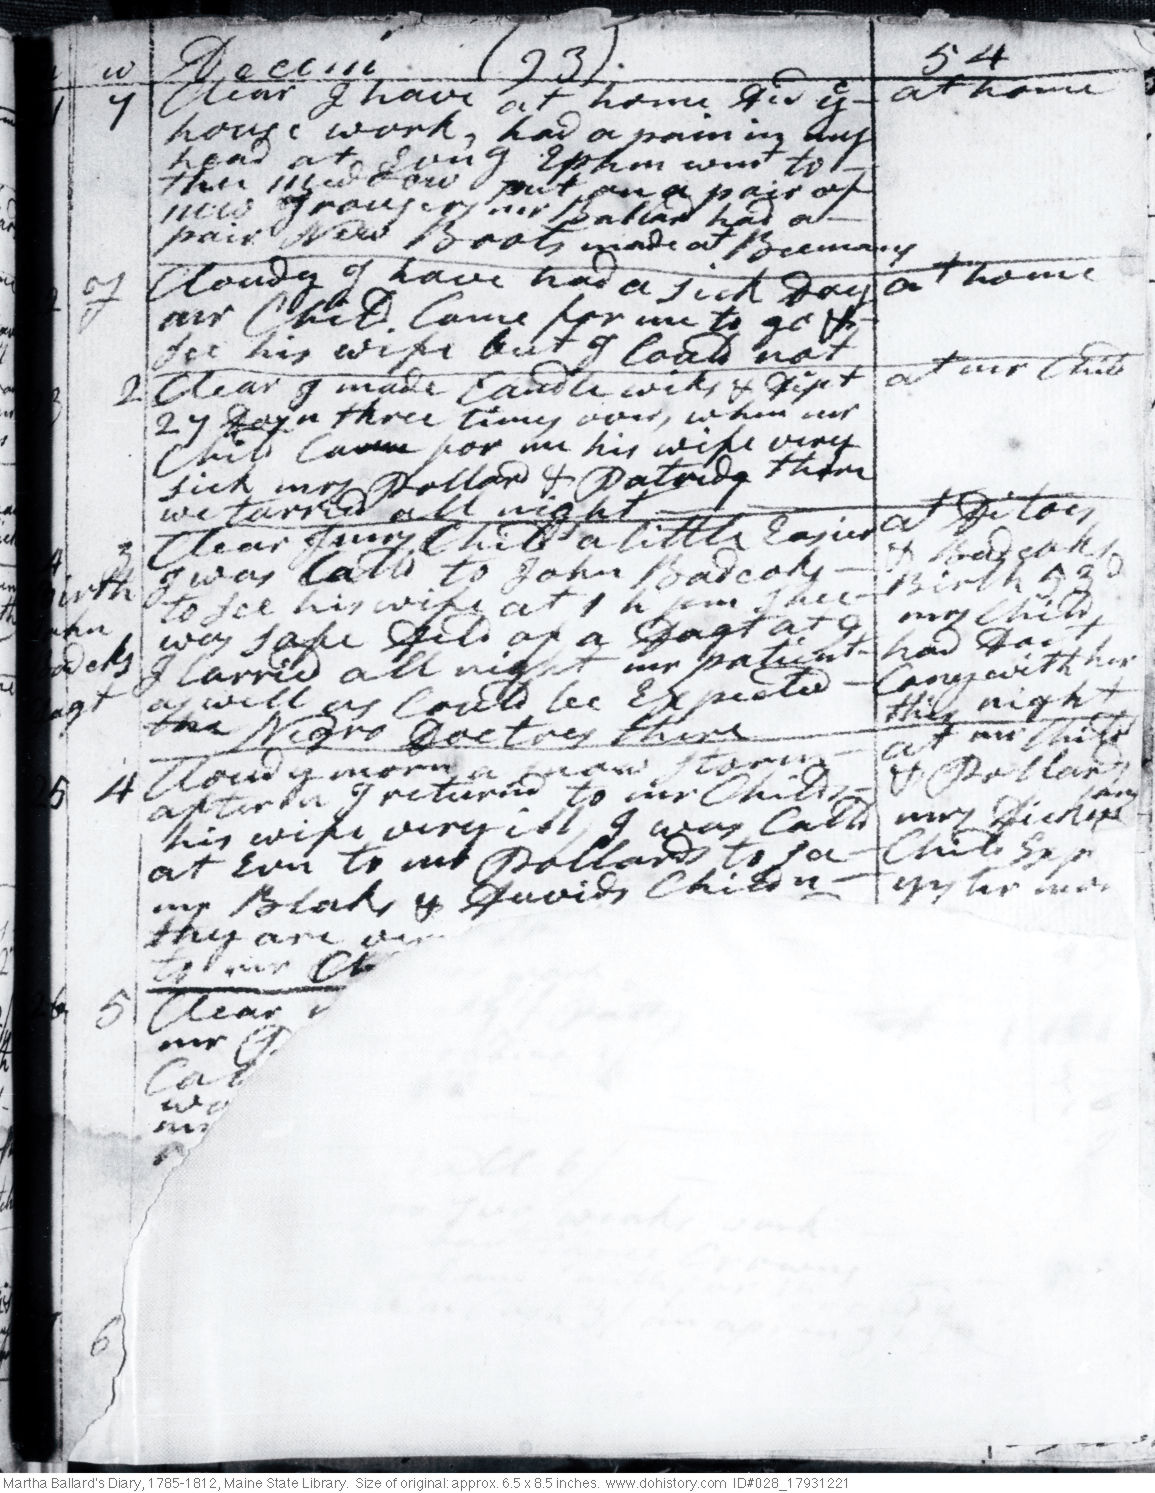 w Decem (93). 54
1 7 Clear I have at home Did ye at home
house work, had a pain in my
head at Evng Ephm went to
the medow put on a pair of
new Trousers mr Ballard had a
pair New Boots made at Beemans
Cloudy I have had a sick Day at home
mr Child Came for me to go &
See his wife but I Could not
2 Clear I made Candle wiks & Dipt at mr Child
27 Dozn three times over, when mr
Child Came for me his wife very
sick mrs Pollard & Patridg there
we tarried all night
4 3 Clear mrs Child a little Easier at Ditoes
I was Calld to John Badcoks & Badcoks
to See his wife at 1 h pm Shee Birth 53d
was safe Deld of a Dagt at 9 mrs Child
I tarried all night my patient had Doc
as well as Could be Expected Cony with her
the Negro Doctres there this night
Birth
Badcks
Dagt
25 4 Cloudy morn a snow storm at mr Child
aftern I returnd to mr Childs & Pollards
his wife very ill, I was Calld mrs Dickman
at Evn to mr Pollards to Se Child Exp
mr Blaks & Davids Childn yester mor
they are ver
to mr Ch
26 5 Clear
mr
Ca
wa
mr
6
Martha Ballard's Diary, 1785-1812, Maine State Library. Size of original: approx. 6.5 x 8.5 inches. www.dohistory.com ID#028_17931221